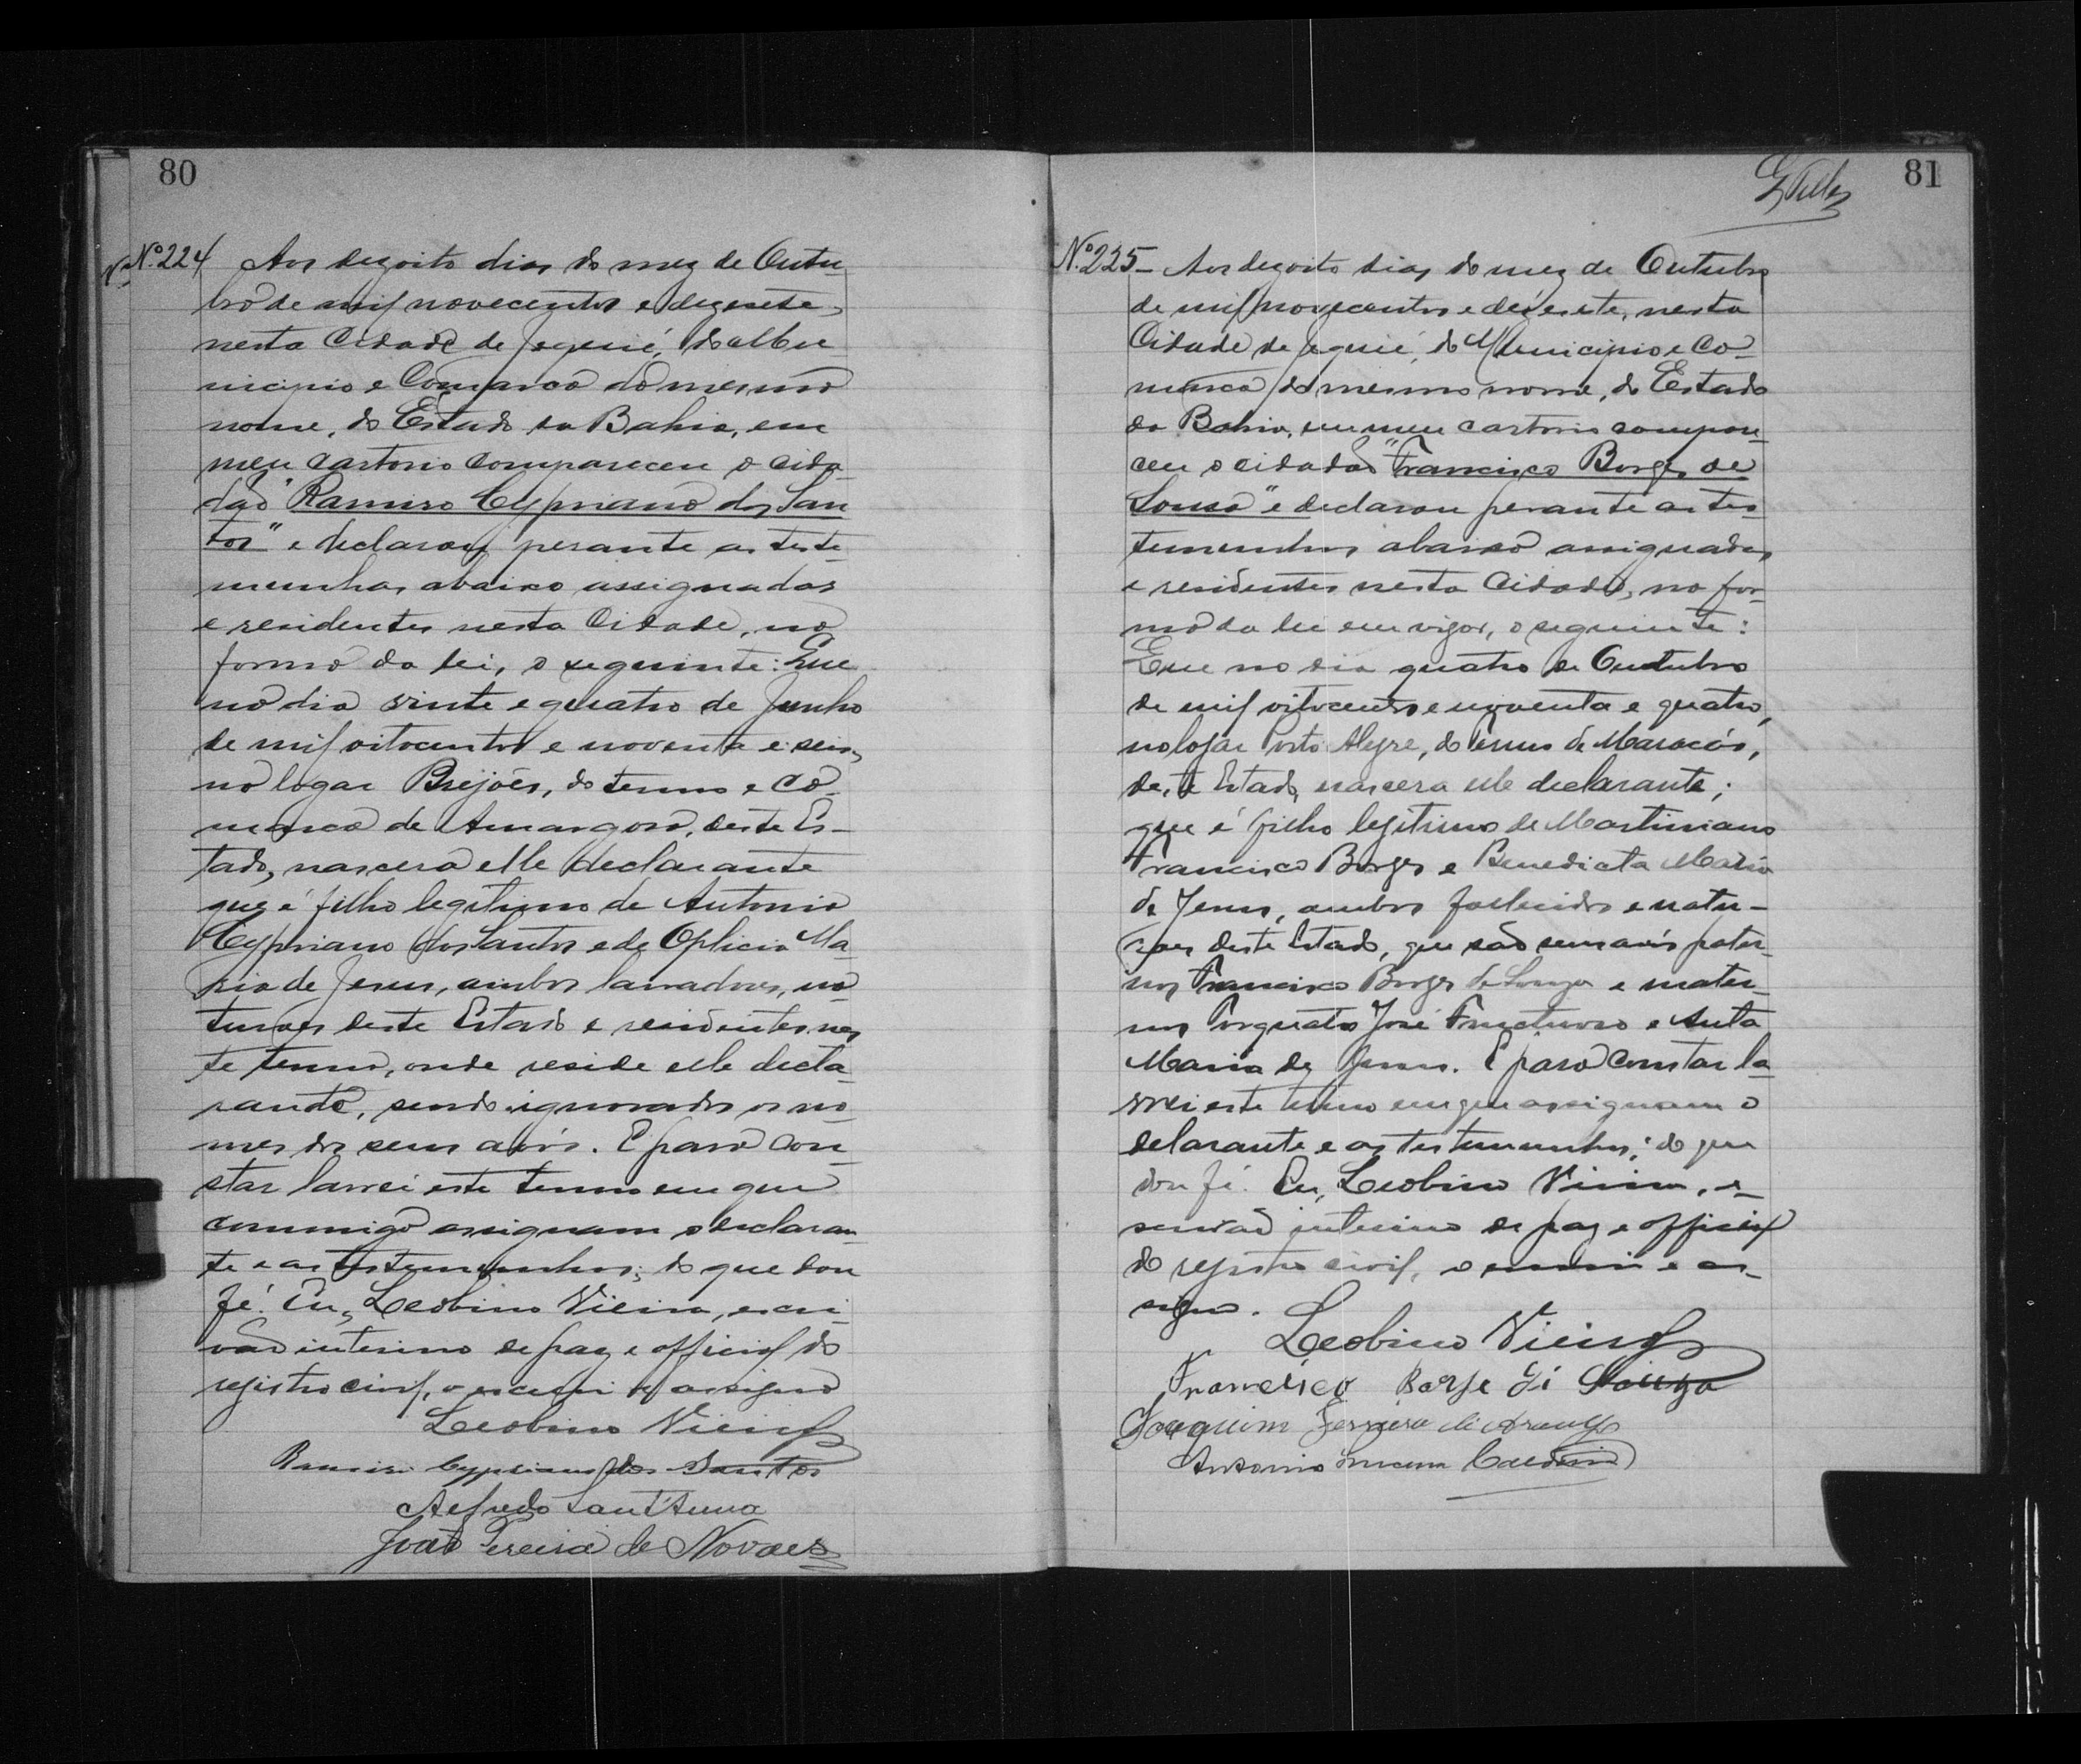 80
Nº 224 Aos dezoito dias do mez de Outu
bro de mil novecentos e dezesete,
nesta Cidade de Jequié, do Mu
nicipio e Comarca do mesmo
nome, do Estado da Bahia, em
meu cartorio compareceu o cida
dão "Ramiro Cypriano dos San
tos" e declarou perante as teste
munhas abaixo assignadas
e residentes nesta Cidade, na
forma da lei, o seguinte: Que
no dia vinte e quatro de Junho
de mil oitocentos e noventa e seis,
no logar Brejões, do termo e Co
marca de Amargosa, deste Es-
tado, nascera elle declarante
que é filho legitimo de Antonio
Cypriano dos Santos e de Oplicia Ma
ria de Jesus, ambos lavradores, na
turaes deste Estado e residentes nes
te termo, onde reside elle decla
rante, sendo ignorados os no
mes dos seus avós. E para con
star lavrei este termo em que
commigo assignam o declaran
te e as testemunhas; do que dou
fé. Eu, Leobino Vieira, escri
vão interino de paz e official do
registro civil, o escrevi e assigno
Leobino Vieira
Ramiro Cypriano dos Santos
Alfredo Sant'Anna
João Pereira de Novaes
81
Nº 225- Aos dezoito dias do mez de Outubro
de mil novecentos e desesete, nesta
Cidade de Jequié, do Municipio e Co-
marca do mesmo nome, do Estado
da Bahia, em meu cartorio compare
ceu o cidadão "Francisco Borges de
Sousa" e declarou perante as tes
temunhas abaixo assignadas
e residentes nesta Cidade, na for
ma da lei em vigor, o seguinte:
Que no dia quatro de Outubro
de mil oitocentos e noventa e quatro,
no logar Porto Alegre, do termo de Maracás,
deste Estado, nascera elle declarante;
que é filho legitimo de Martiniano
Francisco Borges e Benedicta Maria
de Jesus, ambos fallecidos e natu-
raes deste Estado, que são seus avós pater
nos Francisco Borges de Souza e mater-
nos Torquato José Fructuoso e Anta
Maria de Jesus. E para constar la
vrei este termo em que assignam o
delarante e as testemunhas; do que
dou fé. Eu, Leobino Vieira, es-
crivão interino de paz e official
do registro civil, o escrevi e as-
signo.
Leobino Vieira
Francisco Borje di Souza
Joaquim Ferreira de Araujo
Antonio